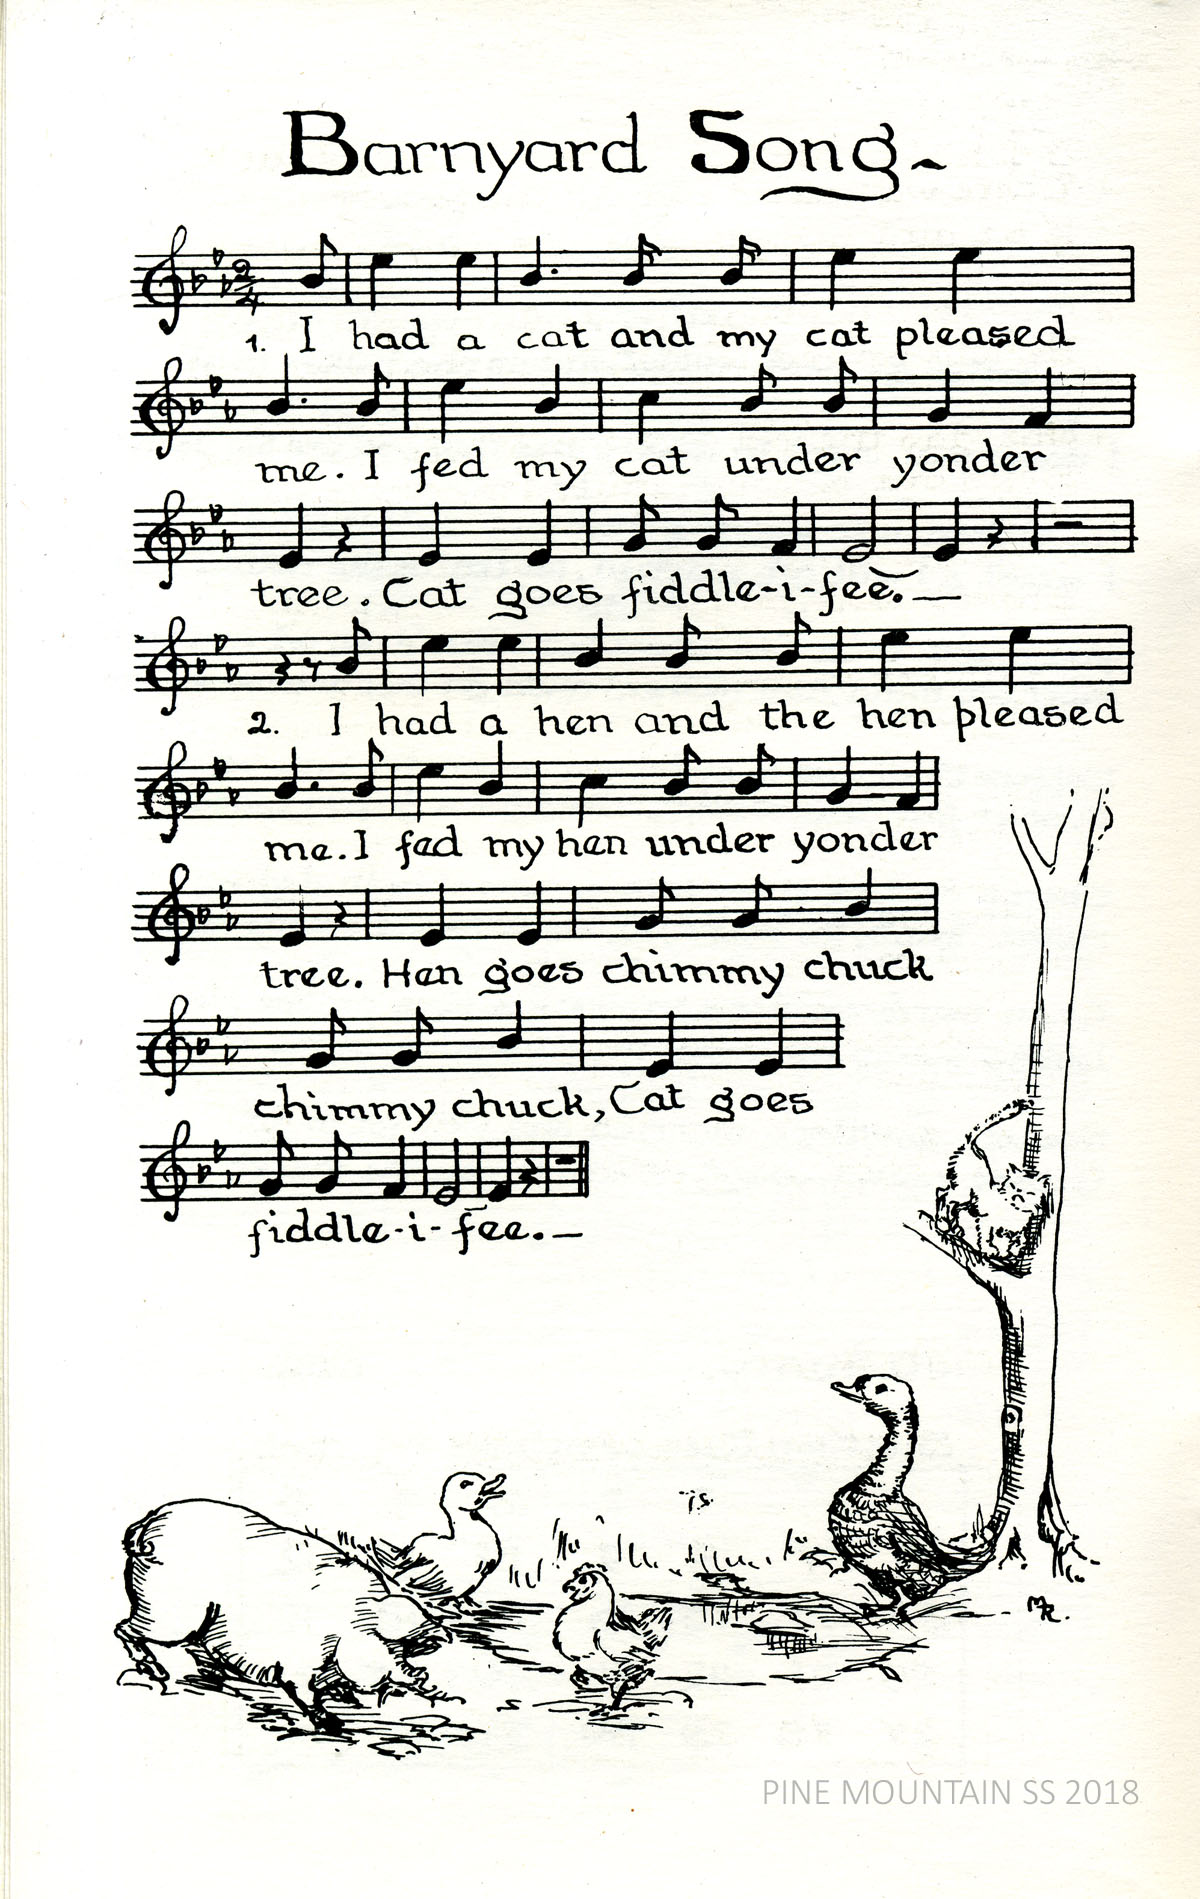 Barnyard Song~
2/4
1. I had a cat and my cat pleased
me. I fed my cat under yonder
tree. Cat goes fiddle-i-fee.—
2. I had a hen and the hen pleased
me. I fed my hen under yonder
tree. Hen goes chimmy chuck
chimmy chuck, Cat goes
fiddle-i-fee.—
MR.
PINE MOUNTAIN SS 2018